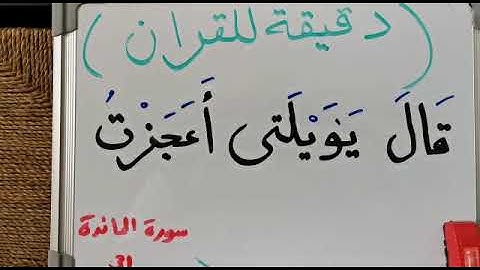 ( دقيقة للقران )
قَالَ يَوَيْلَتى أَعَجَزْتُ
سورة المائدة
31